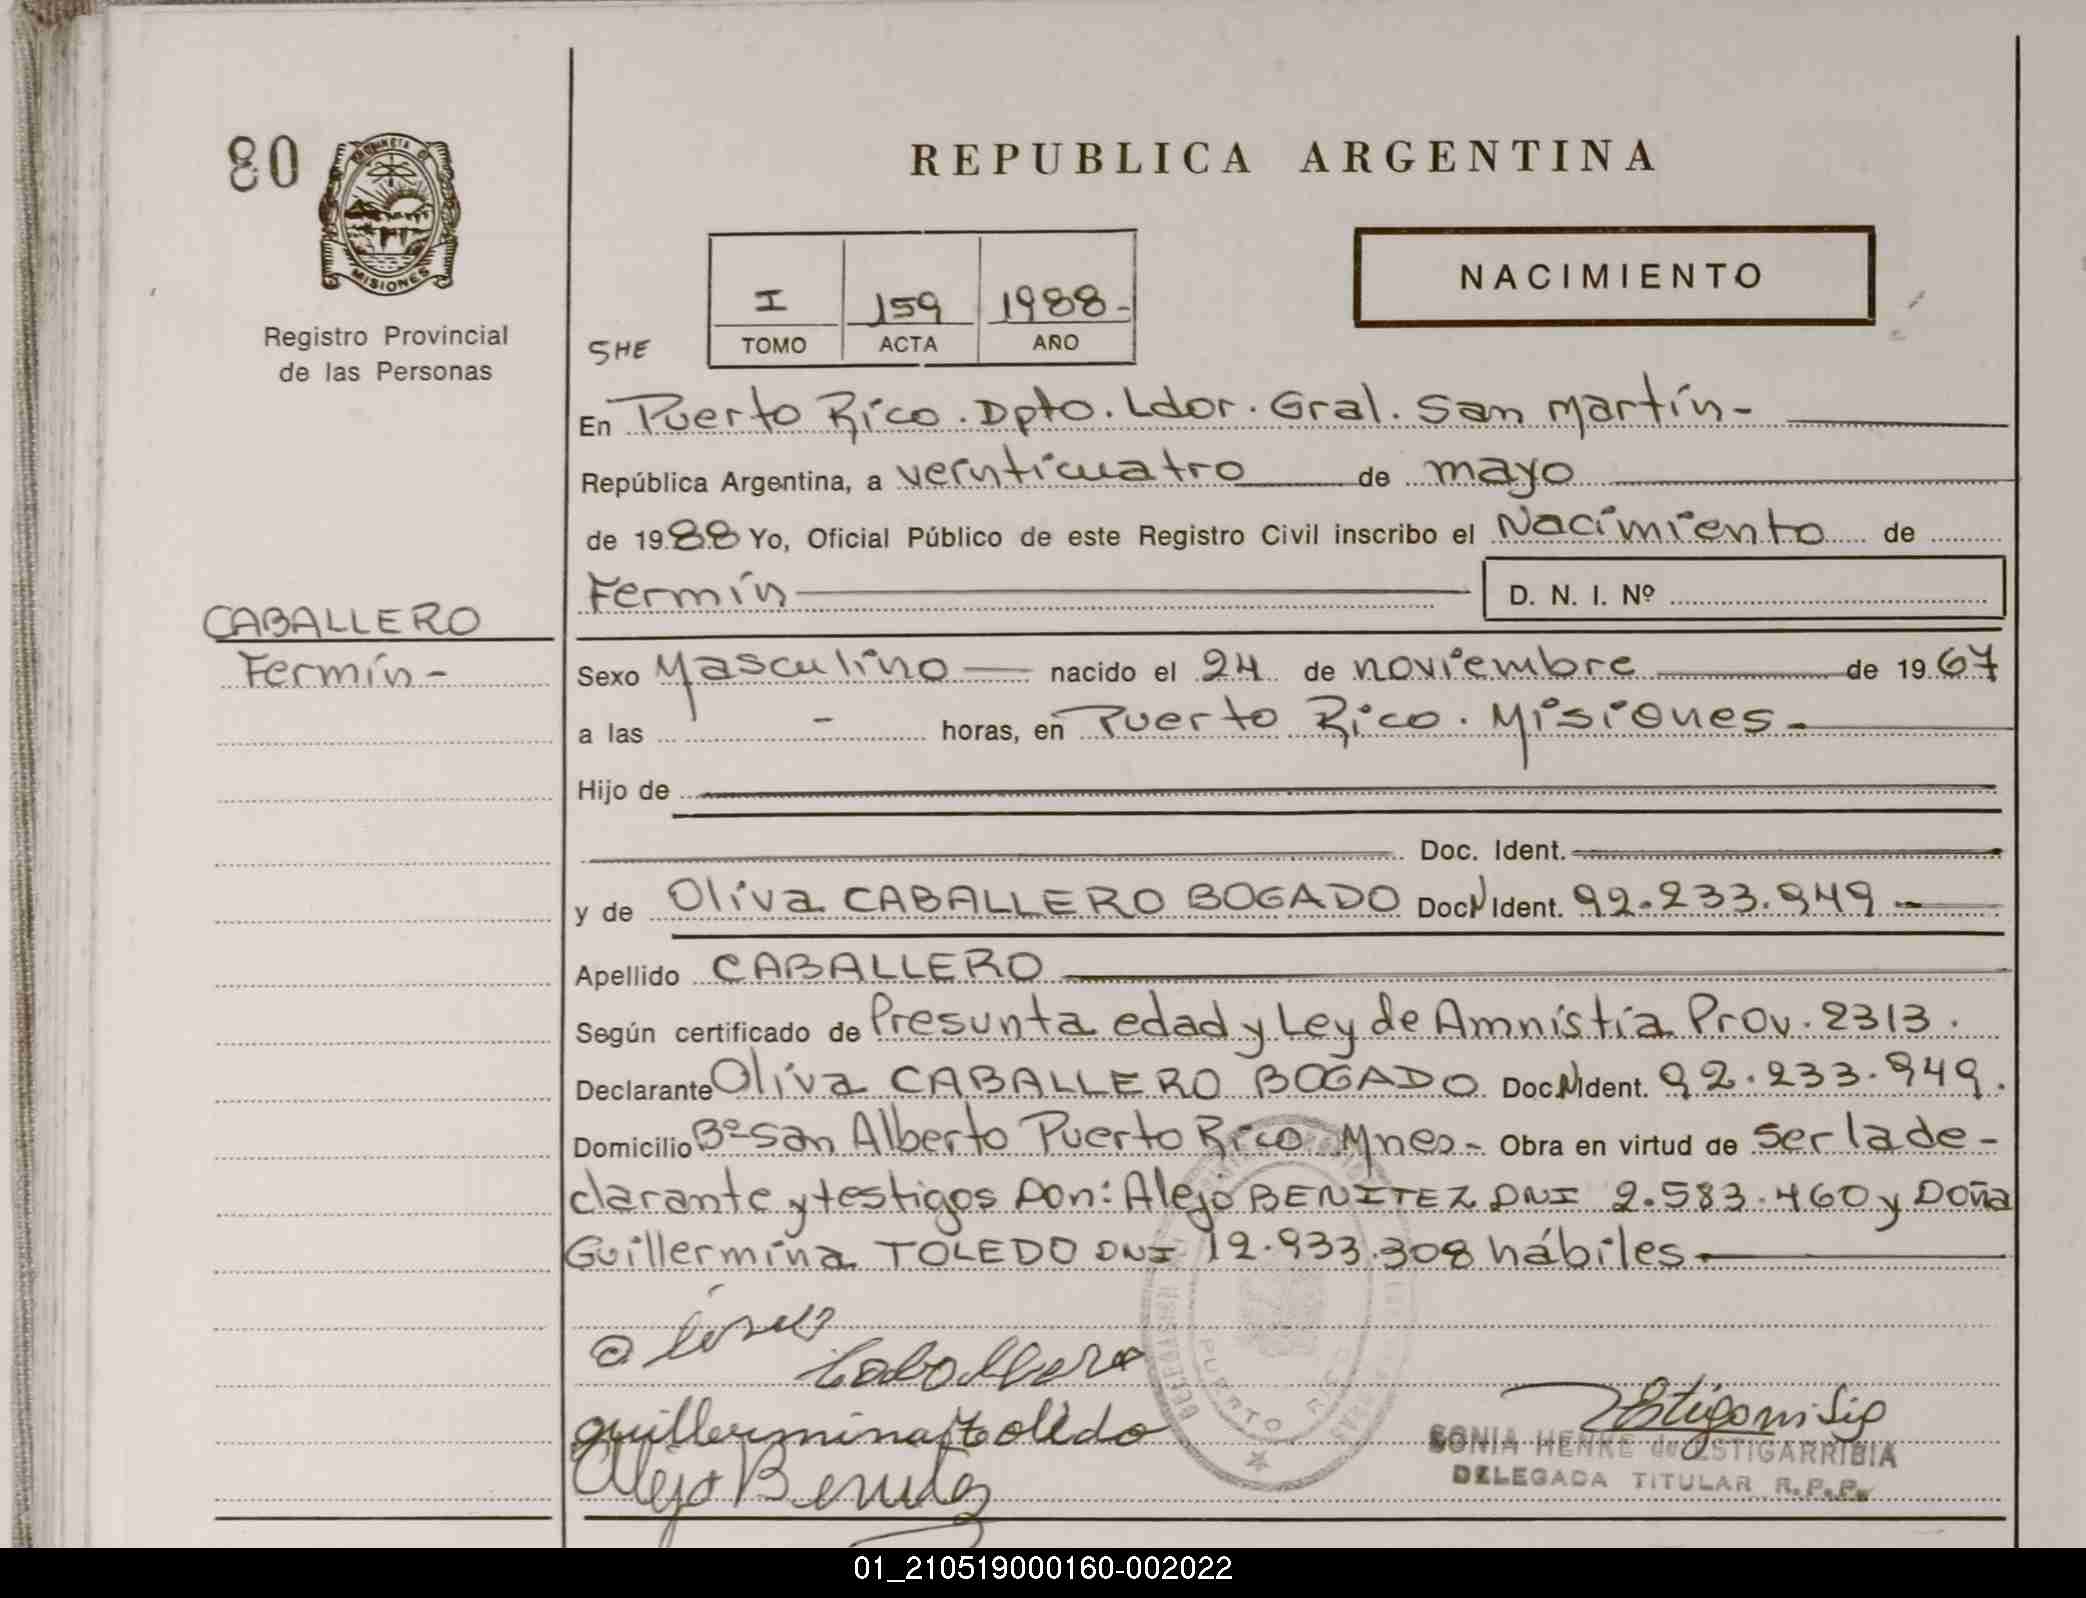 80
PROVINCIA DE
MISIONES
Registro Provincial
de las Personas
REPUBLICA ARGENTINA
NACIMIENTO
I 159 1988-
TOMO ACTA AÑO
SHE
En Puerto Rico. Dpto. Ldor. Gral. San Martín-
República Argentina, a veinticuatro de mayo
de 1988 Yo, Oficial Público de este Registro Civil inscribo el Nacimiento de
Fermín D. N. I. Nº
CABALLERO
Fermín-
Sexo Masculino nacido el 24 de noviembre de 1967
a las - horas, en Puerto Rico. Misiones-
Hijo de
Doc. Ident.
y de Oliva CABALLERO BOGADO Doc N Ident. 92.233.949-
Apellido CABALLERO
Según certificado de Presunta edad y Ley de Amnistía Prov. 2313.
Declarante Oliva CABALLERO BOGADO Doc. N Ident. 92.233.949.
Domicilio Bº San Alberto Puerto Rico Mnes- Obra en virtud de ser la de-
clarante y testigos Don: Alejo BENITEZ DNI 2.583.460 y Doña
Guillermina TOLEDO DNI 12.933.308 hábiles-
Caballero
guillermina toledo
Alejo Benitez
PUERTO RICO
SONIA HENKE de ESTIGARRIBIA
DELEGADA TITULAR R.P.P.
01_210519000160-002022